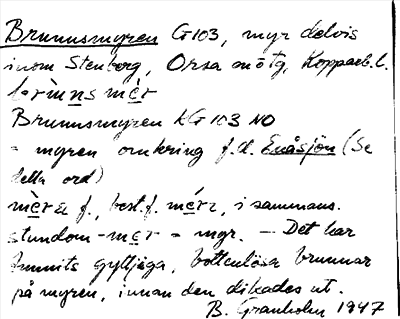 Brunnsmyren G103, myr delvis
inom Stenberg, Orsa önötg, Kopparb. l.
brùnns mèr
Brunnsmyren KG 103 NO
= myren omkring f.d. Enåsjön (Se
detta ord)
mèra f., best. f. mèrɛ, i sammans.
stundom -mèr = myr. – Det har
funnits gyttjiga, bottenlösa brunnar
på myren, innan den dikades ut.
B. Granholm 1947